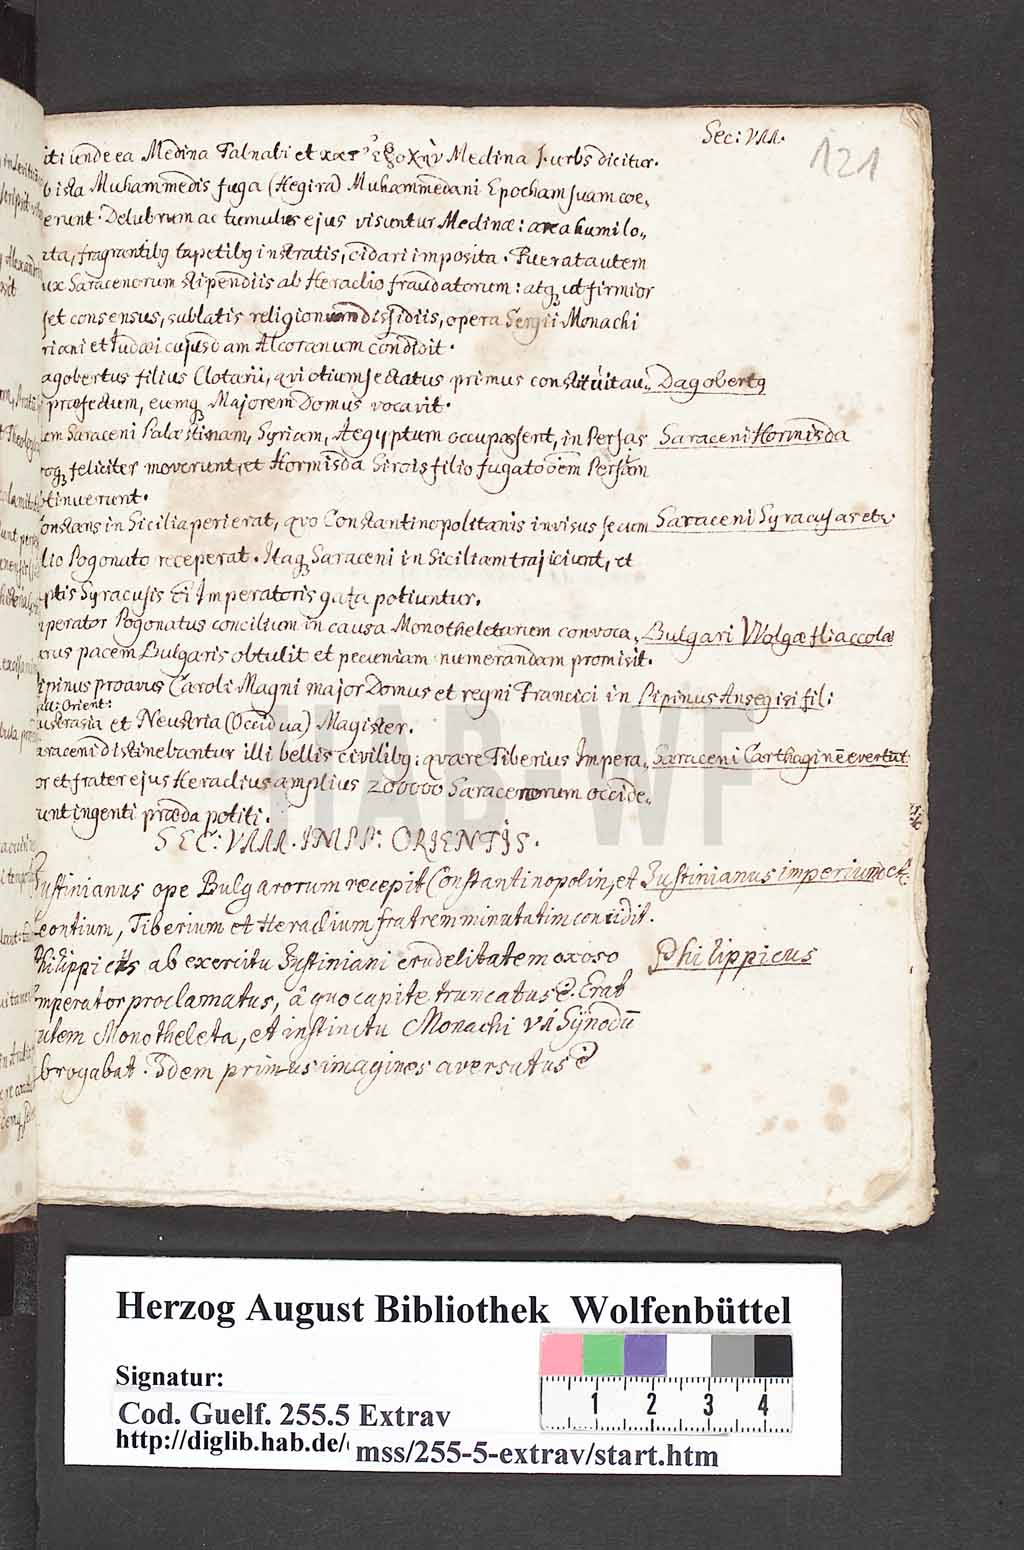 Sec: VII.
121
iti unde ea Medina Talnabi et κατ' ἐξοχὴν Medina s. urbs dicitur.
b ista Muhammedis fuga (Hegira) Muhammedani Epocham suam coe„
erunt. Delubrum ac tumulus ejus visuntur Medinæ: arca humi lo„
ata, fragrantibq tapetibq instratis, cidari imposita. Fuerat autem
ux Saracenorum stipendiis ab Heraclio fraudatorum: atq ut firmior
set consensus, sublatis religionum dissidiis, opera Sergii Monachi
riani et Judæi cujusdam Alcoranum condidit.
agobertus filius Clotarii, qui otium sectatus primus constituit au„ Dagobertq
præfectum, eumq Majorem Domus vocavit.
em Saraceni Palæstinam, Syriam, Aegyptum occupassent, in Persas Saraceni Hormisda
oq feliciter moverunt, et Hormisda Sirois filio fugato oem Persam
btinuerunt.
onstans in Sicilia perierat, quo Constantinopolitanis invisus secum Saraceni Syracusas etc
lio Pogonato receperat. Itaq Saraceni in Siciliam trajiciunt, et
ptis Syracusis Ei Imperatoris gaza potiuntur.
perator Pogonatus concilium in causa Monotheletarum convoca„ Bulgari Wolgæ fl: accolæ
urus pacem Bulgaris obtulit et pecuniam numerandam promisit.
ipinus proavus Caroli Magni major Domus et regni Francici in Pipinus Ansegisi fil:
Orient:
ustrasia et Neustria (Occidua) Magister.
araceni distinebantur illi bellis civilibq: quare Tiberius Impera„ Saraceni Carthaginē evertūt
or et frater ejus Heraclius amplius 200000 Saracenorum occide„
unt ingenti præda potiti.
SEC: VIII. IMPP: ORIENTIS.
Justinianus ope Bulgarorum recepit Constantinopolin, et Justinianus imperium etc.
Leontium, Tiberium et Heraclium fratrem minutatim concidit.
Philippicus ab exercitu Justiniani crudelitatem exoso Philippicus
mperator proclamatus, â quo capite truncatus ē. Erat
utem Monotheleta, et instinctu Monachi VI Synodū
brogabat. Idem primus imagines aversatus ē
HAB-WF
Herzog August Bibliothek Wolfenbüttel
Signatur:
Cod. Guelf. 255.5 Extrav
http://diglib.hab.de/ mss/255-5-extrav/start.htm
1 2 3 4